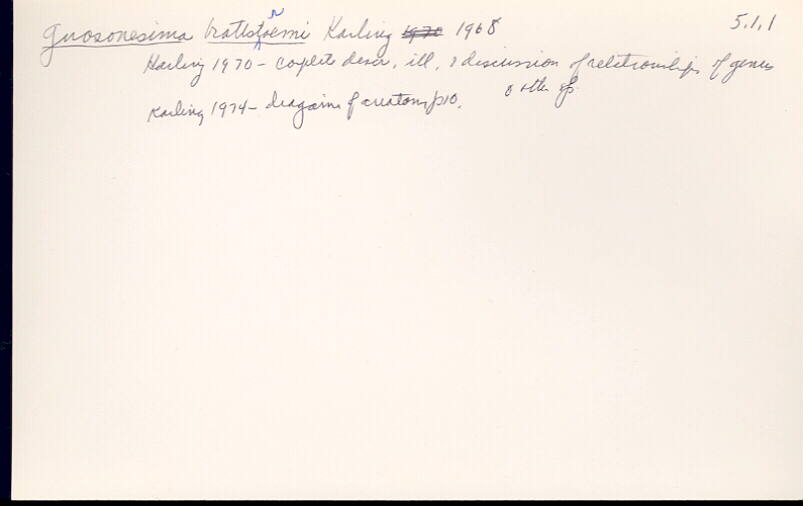 Gnosonesima brattstroemi Karling 1970 1968 5.1.1
Karling 1970 - coplete descr, ill, & discussion of relationships of genus
& other sps.
Karling 1974 - diagram of anatomy p10.